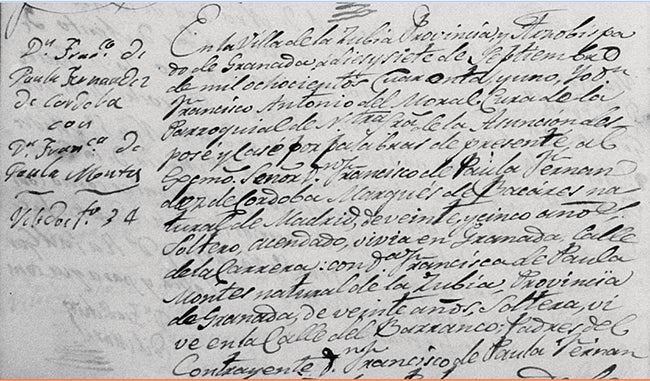 Dn. Franco. de
Paula Fernandez
de Cordoba
con
Dª. Franca. de
Paula Montes
Vi
En la Villa de la Zubia Provincia y Arzobispa
do de Granada a diez y siete de Septiembre
de mil ochocientos cuarenta y uno, Yo Dn.
Francisco Antonio del Moral Cura de la
Parroquial de Ntra. Sra. de la Asuncion des
posé y casé por palabras de presente, al
Exmo. Señor Dn. Francisco de Paula Fernan
dez de Cordoba Marques de Bacares na
tural de Madrid, de veinte y cinco años,
Soltero, vivia en Granada Calle
de la Carrera: con Dª. Francisca de Paula
Montes natural de la Zubia, Provincia
de Granada, de veinte años, Soltera, vi
ve en la Calle del Barranco: Padres del
Contrayente Dn. Francisco de Paula Fernan